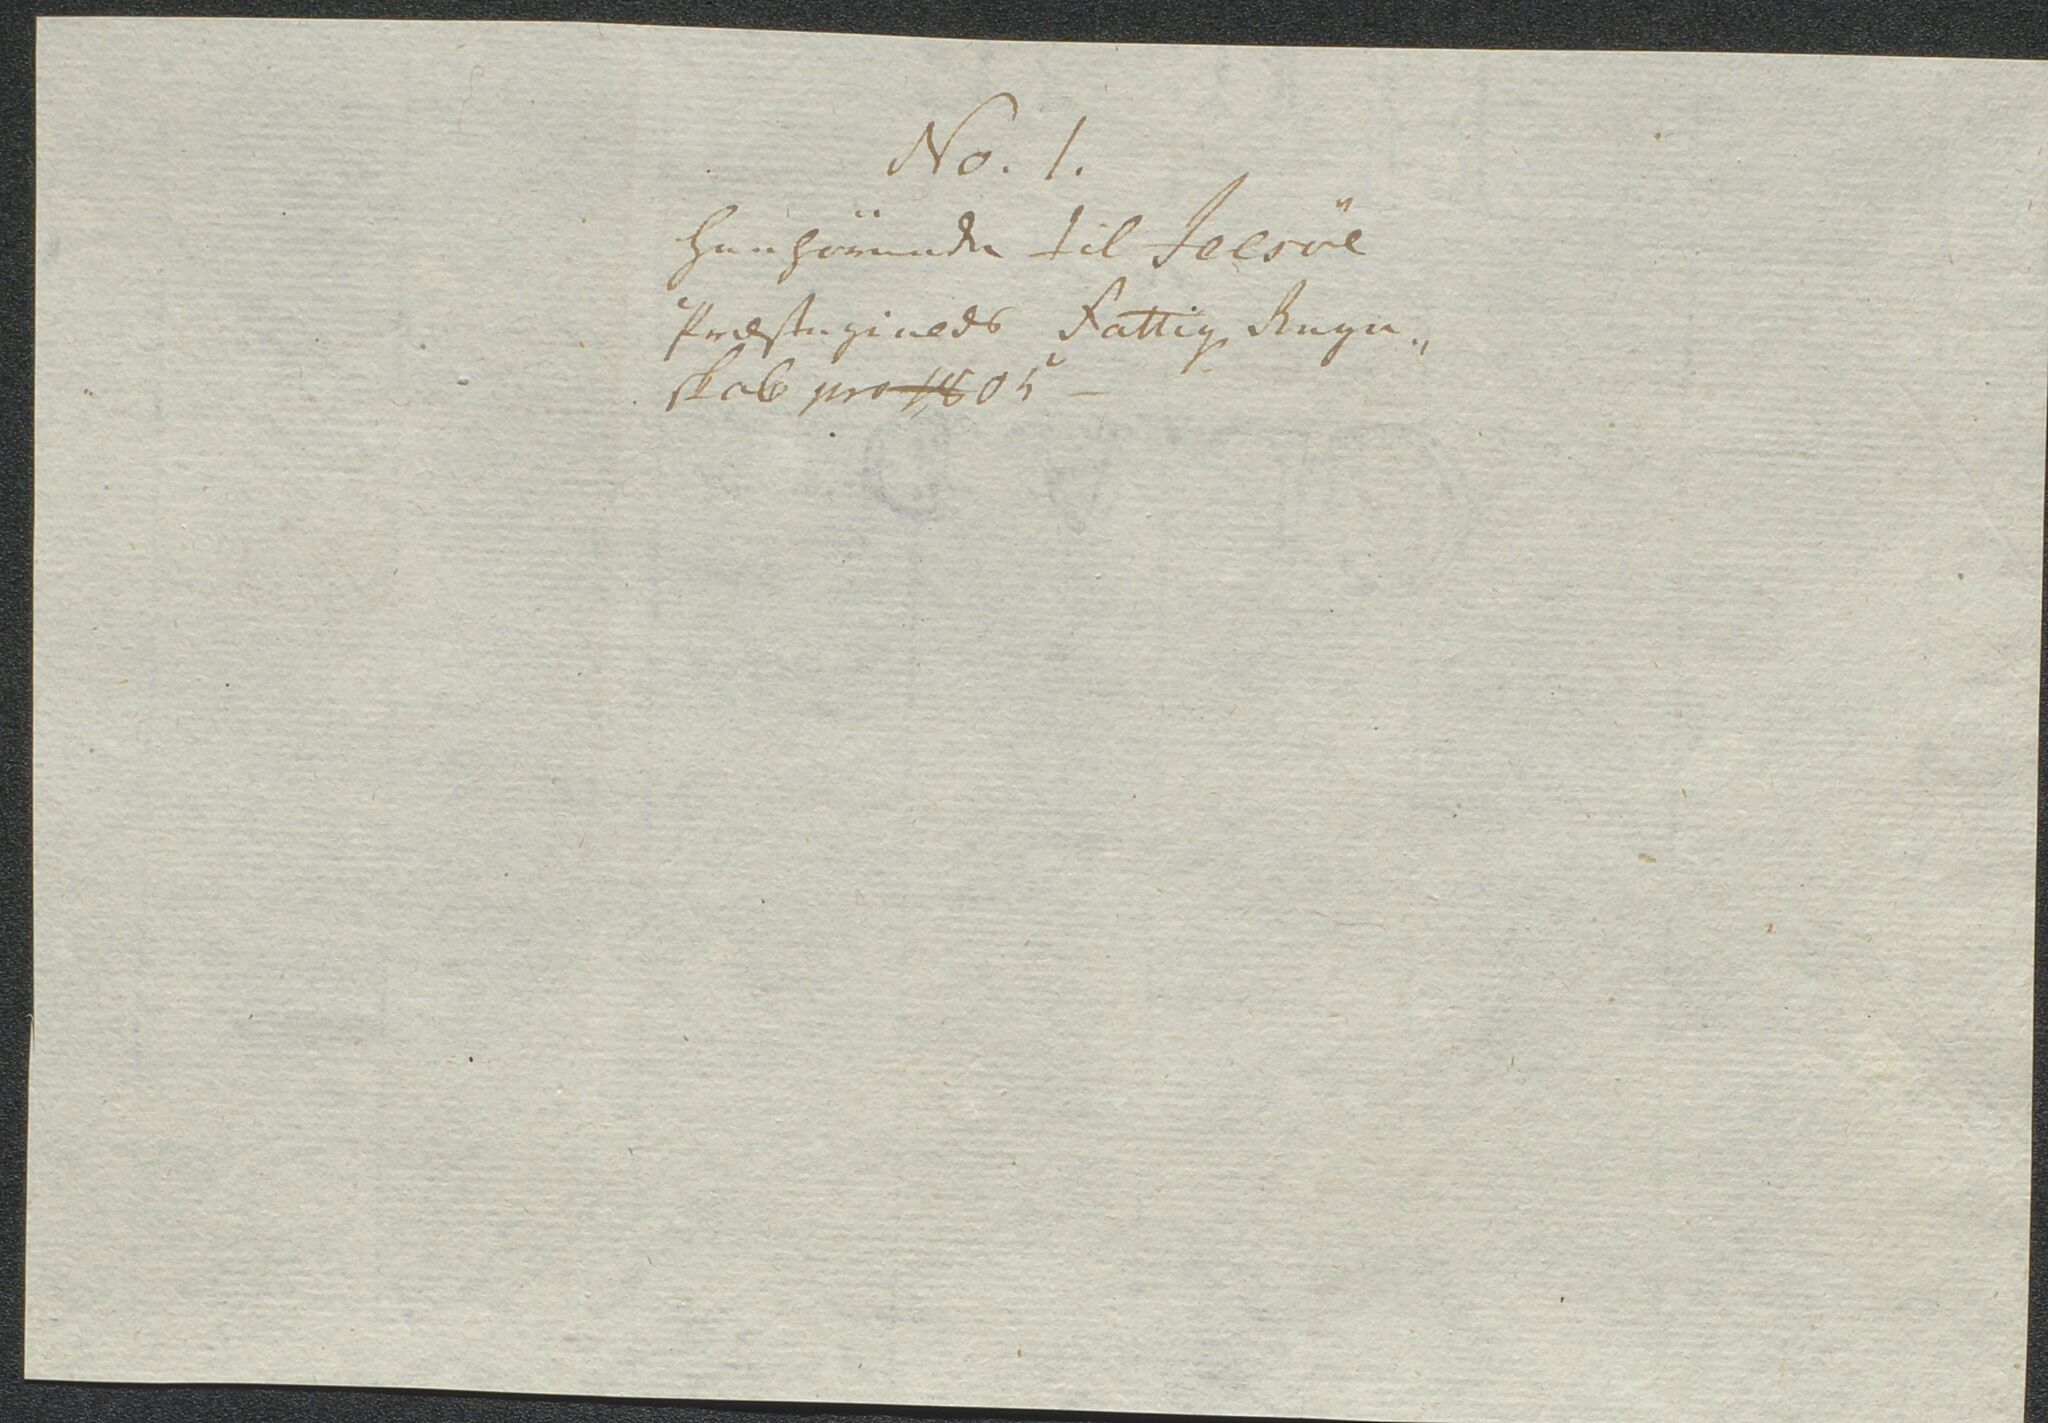 No. 1.
henhørende til Jelsøe
Præstegieds Fattig Regn„
skab pro 1805 –